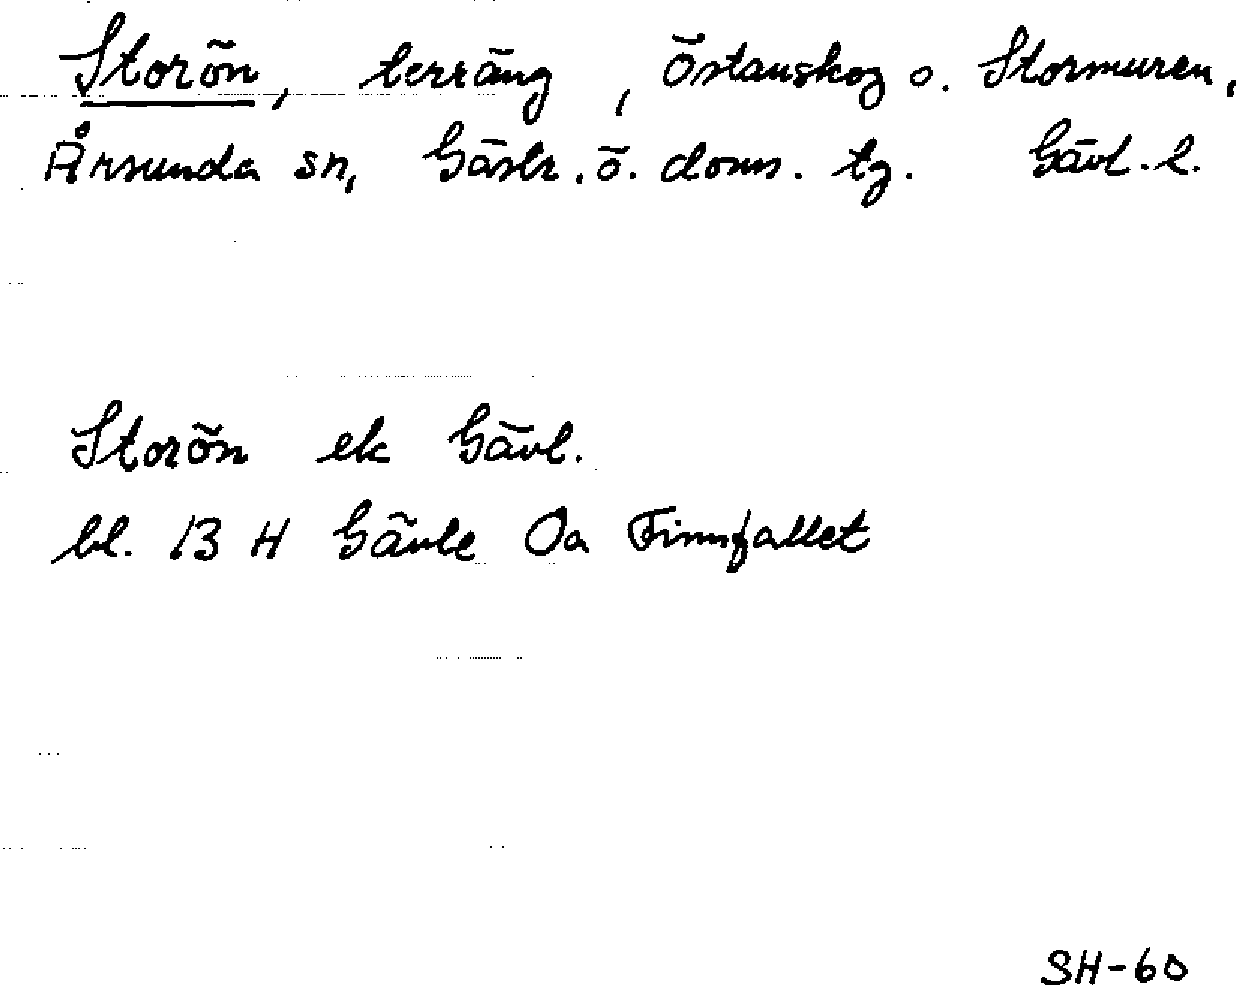 Storön, terräng, Östanskog o. Stormuren,
Årsunda sn, Gästr. ö. doms. tg. Gävl. l.
Storön ek Gävl.
bl. 13 H Gävle Oa Finnfallet
SH-60